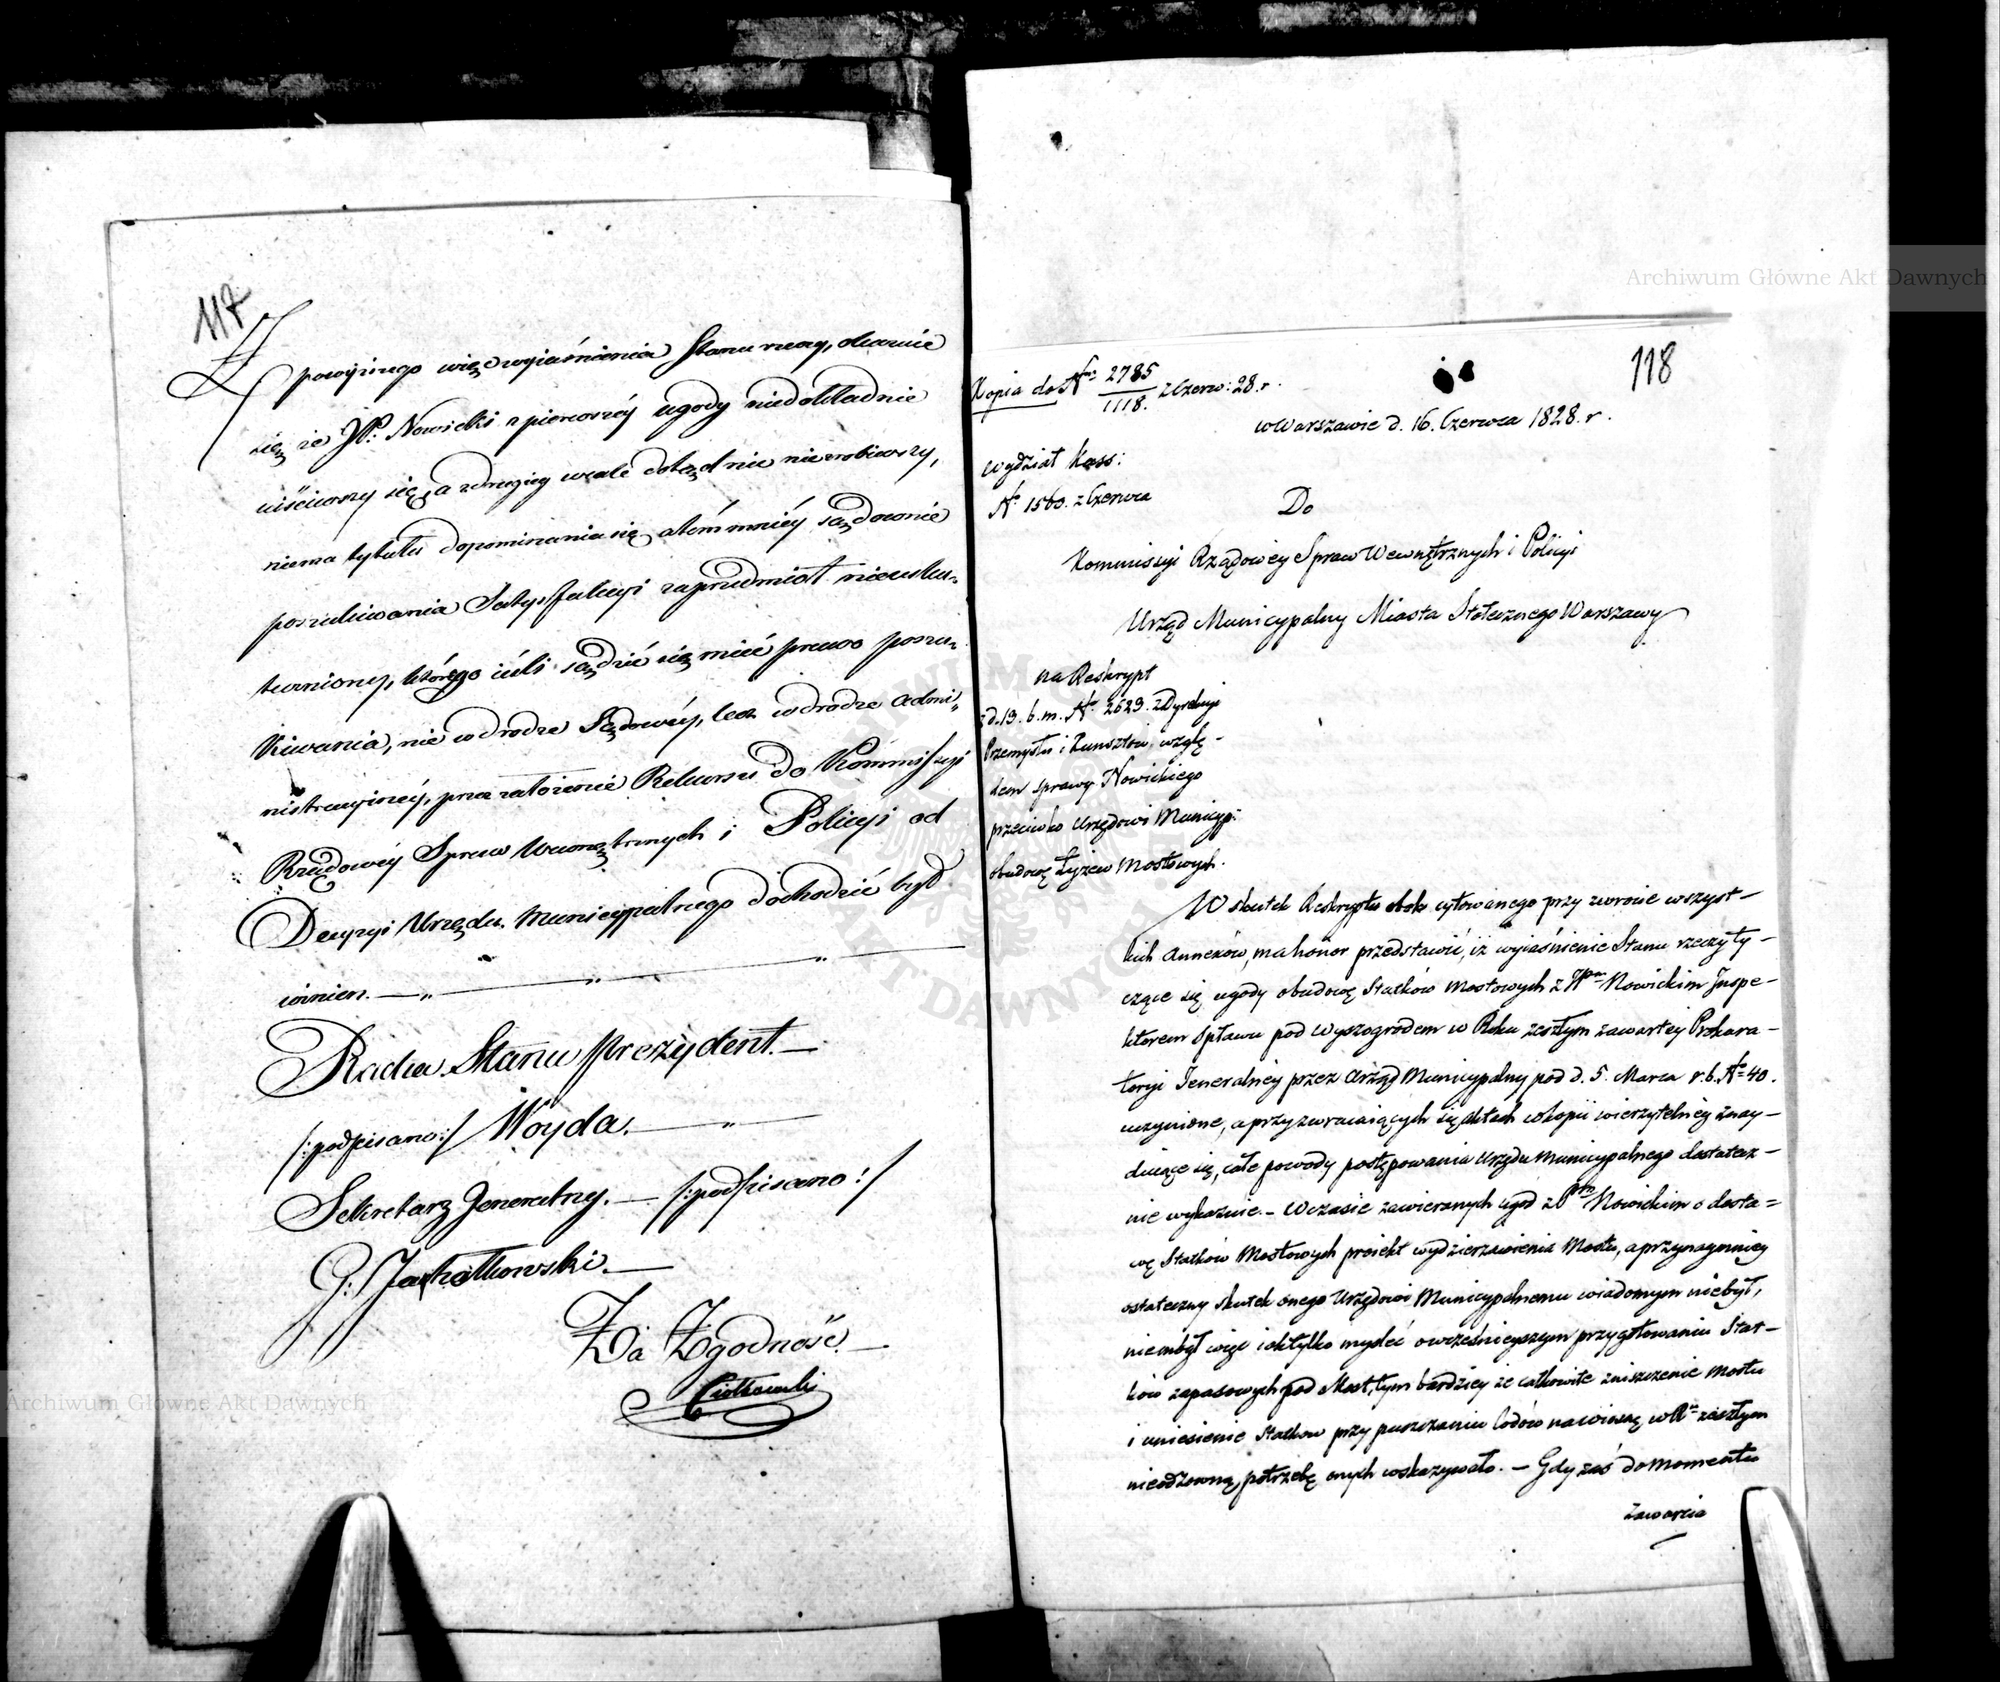 117
Z powyższego więc wyiaśnienia Stanu rzeczy, okazuie
się że JP: Nowicki z pierwszéy ugody niedokładnie
uiściwszy się, a zdrugiey wcale dotąd nic niezrobiwszy,
niema tytułu dopominania się atém mniéy sądownie
poszukiwania Satysfakcyi zaprzedmiot nieusku-
teczniony, którego ieśli sądzić się mieć prawo poszu-
kiwania, nie wdrodze Sądowéy, lecz wdrodze admi-
nistracyinéy, przez założenie Rekursu do Kommissyi
Rządowéy Spraw Wewnętrznych i Policyi od
Decyzyi Urzędu Municypalnego dochodzić był
winien.
Radca Stanu Prezydent.
/:podpisano:/ Woyda.
Sekretarz Jeneralny. /:podpisano:/
G: Jachołkowski.
Za Zgodność.
Ciółkowski
118
Kopia do Nru 2785/1118. z Czerw: 28. r.
w Warszawie d. 16. Czerwca 1828. r.
Wydział Kass:
No 1560. z Czerwca
Do
Kommissyi Rządowéy Spraw Wewnętrznych i Policyi
Urząd Municypalny Miasta Stołecznego Warszawy
na Reskrypt
z d. 13. b. m. No 2629. z Dyrekcyi
Przemysłu i Kunsztów, wzglę-
dem sprawy Nowickiego
przeciwko Urzędowi Municyp:
obudowę Łyżew Mostowych.
W skutek Reskryptu obok cytowanego przy zwrocie wszyst-
kich Annexów, ma honor przedstawić, iż wyiaśnienie Stanu rzeczy ty-
czące się ugody obudowę Statków Mostowych z JPm Nowickim Inspe-
ktorem Spławu pod Wyszogrodem w Roku zeszłym zawartéy Prokura-
toryi Jeneralnéy przez Urząd Municypalny pod d. 5. Marca r. b. No 40.
uczynione, a przy zwracaiących się aktach w kopii wierzytelnéy znay-
duiące się, całe powody postępowania Urzędu Municypalnego dostatecz-
nie wykazuie. - Wczasie zawieranych ugod z Pm Nowickim o dosta-
wę Statków Mostowych proiekt wydzierżawienia Mostu, a przynaymniéy
ostateczny skutek onego Urzędowi Municypalnemu wiadomym niebył,
niemógł więc iaktylko mysleć owcześnieyszym przygotowaniu Stat-
ków zapasowych pod Most, tym bardziéy że całkowite zniszczenie Mostu
i uniesienie Statkow przy puszczaniu lodów na wiosnę w Rn zeszłym
nieodzowną potrzebę onych wskazywało. - Gdy zaś do momentu
zawarcia
Archiwum Główne Akt Dawnych
Archiwum Główne Akt Dawnych